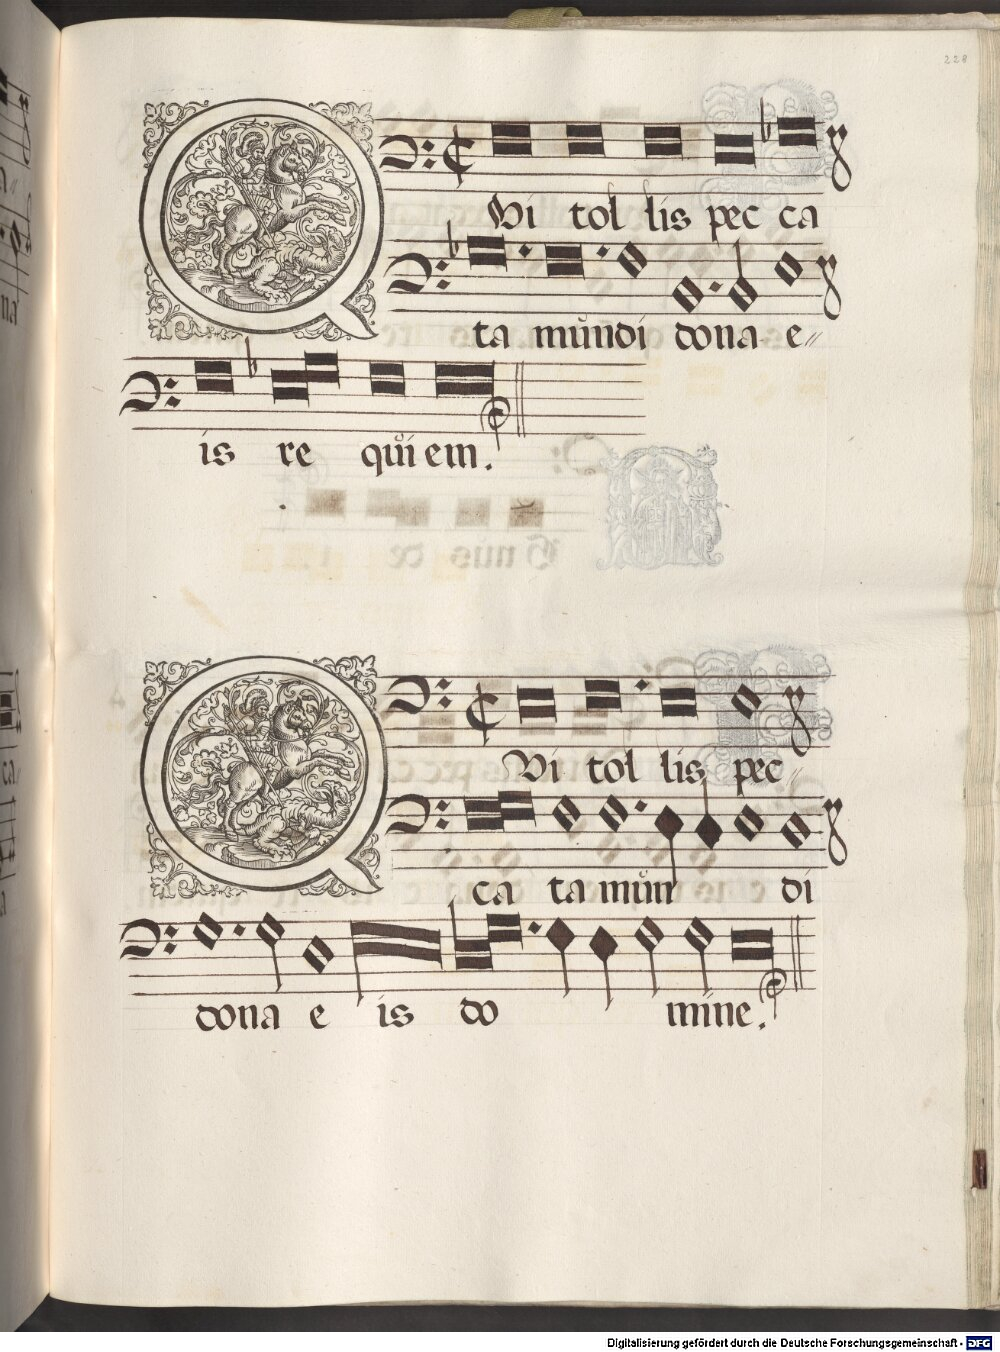 228
Qui tol lis pec ca
ta mundi dona e
is re quiem.
Qui tol lis pec
ca ta mun di
dona e is do mine.
Digitalisierung gefördert durch die Deutsche Forschungsgemeinschaft - DFG